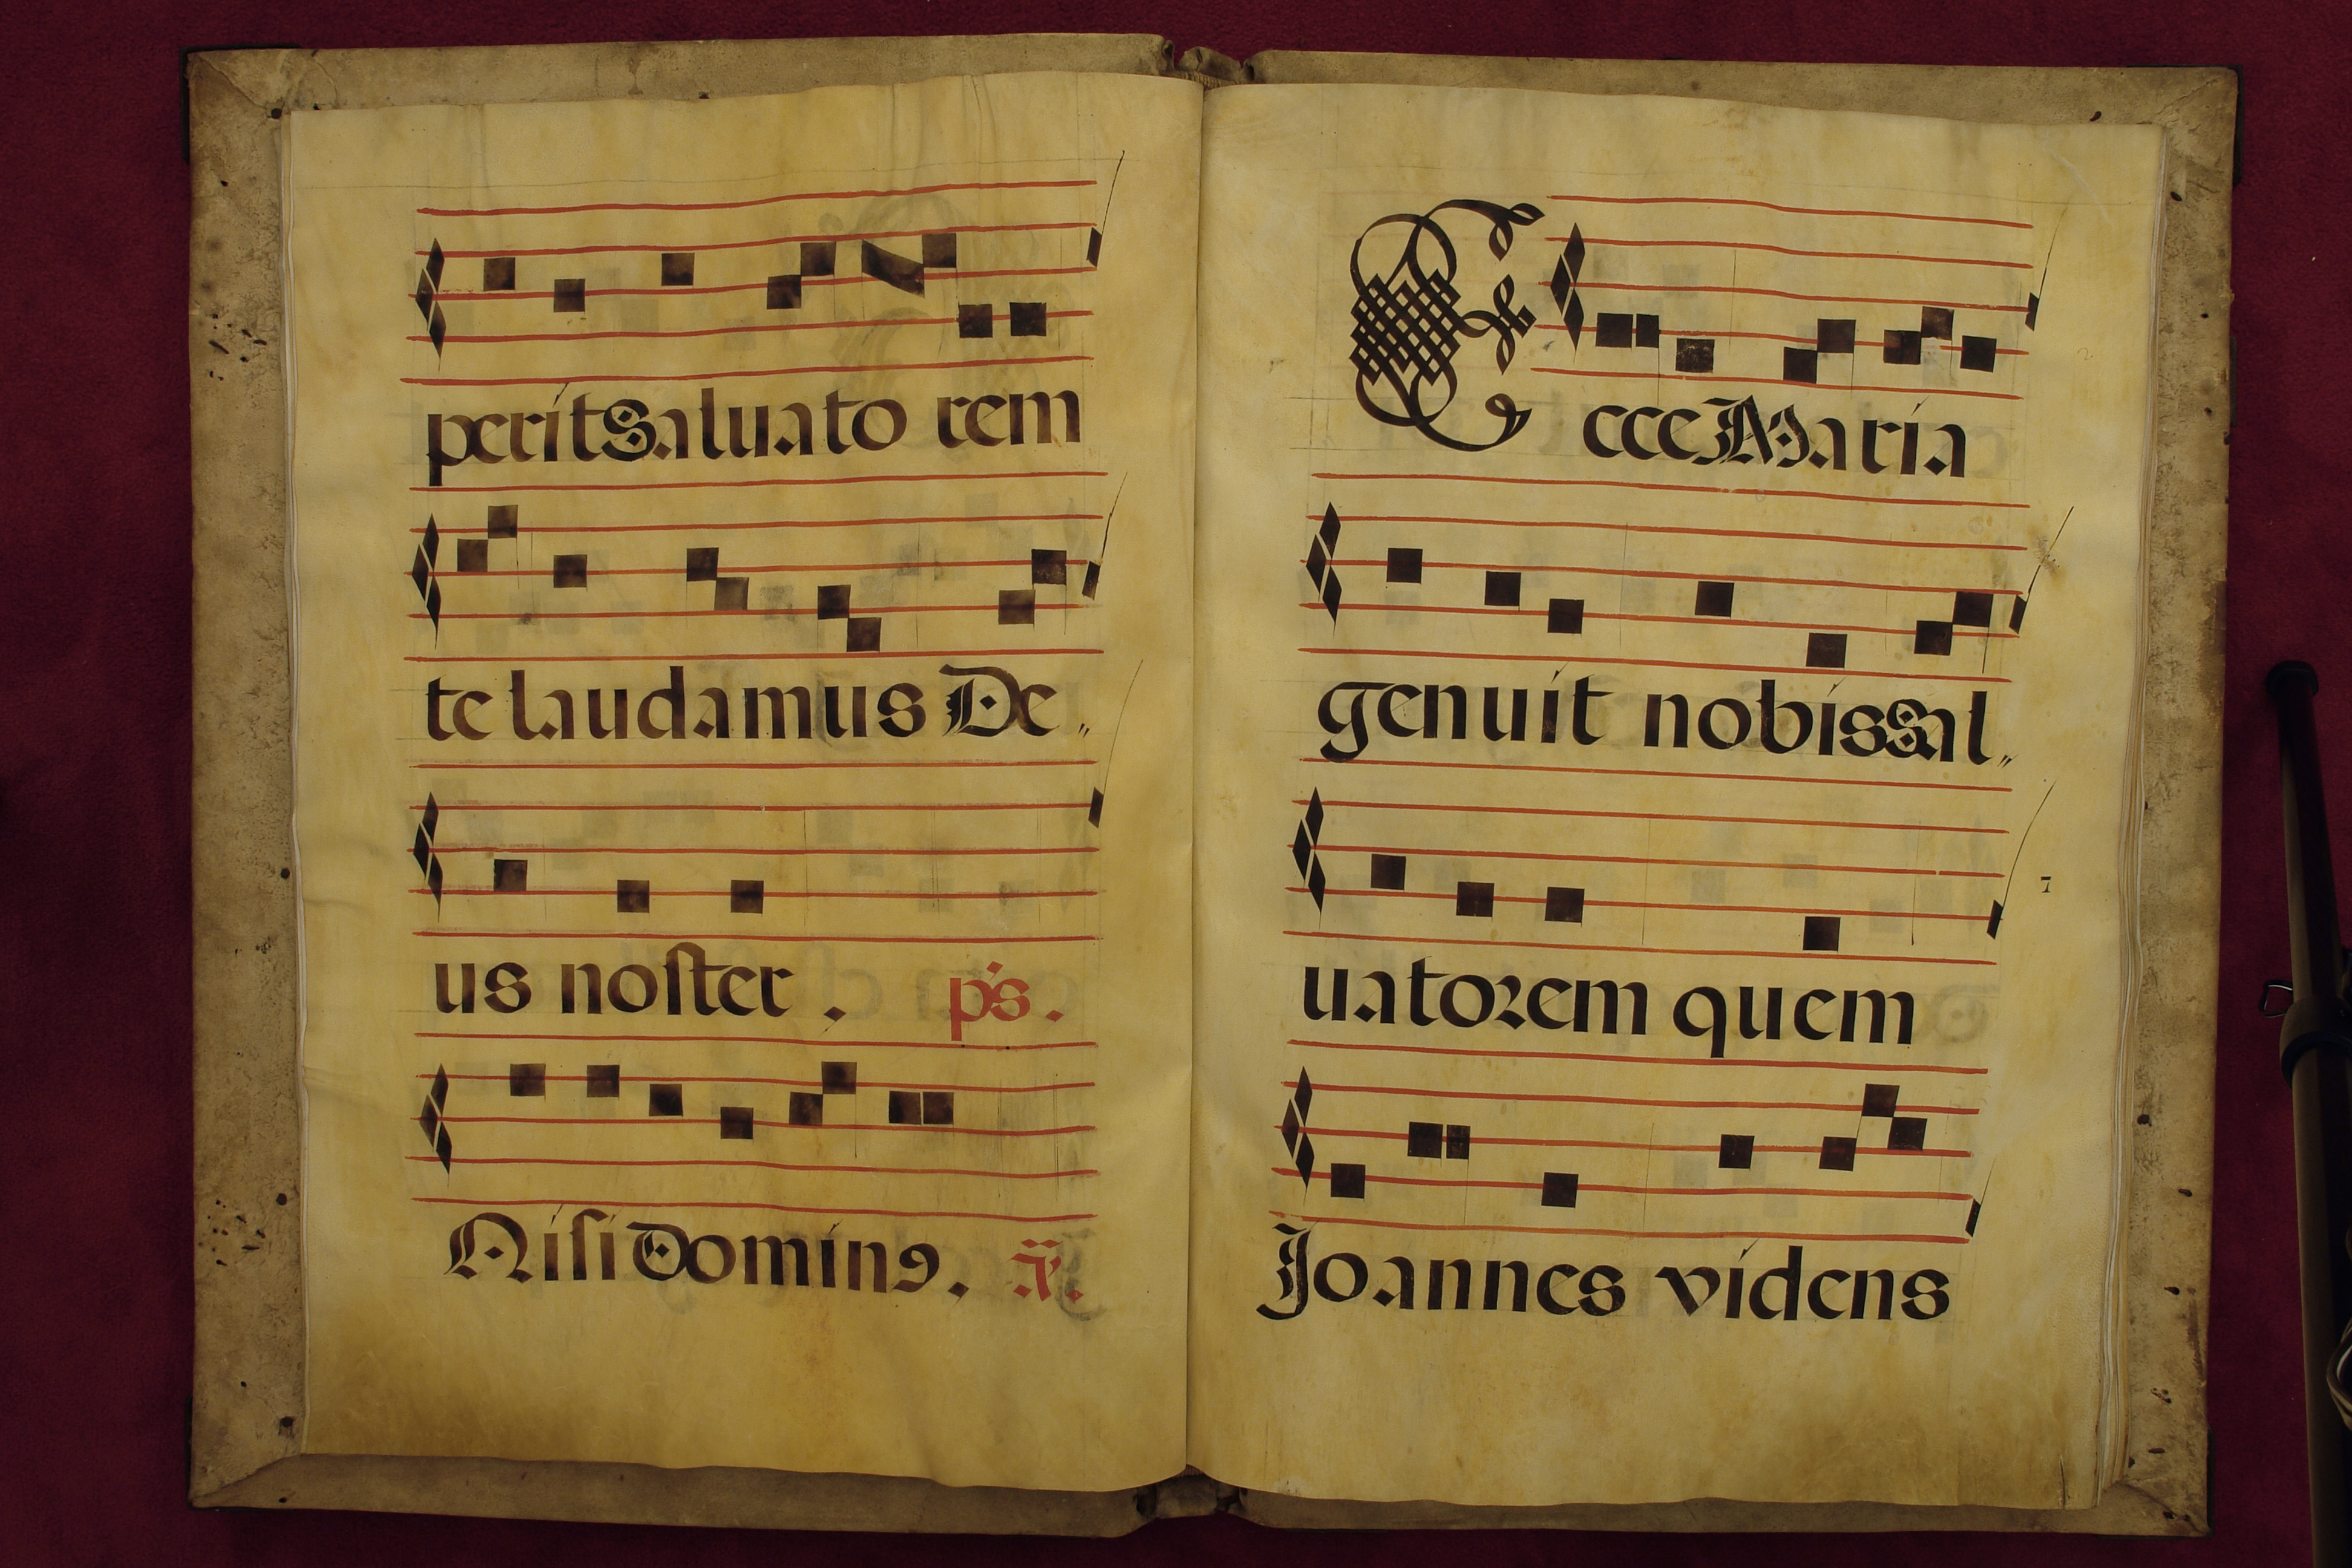 perit Saluato rem
te laudamus De„
us noster . ps .
Nisi Dominꝯ. ã.
Ecce Maria
genuit nobis Sal„
7
uatoꝛem quem
Joannes videns